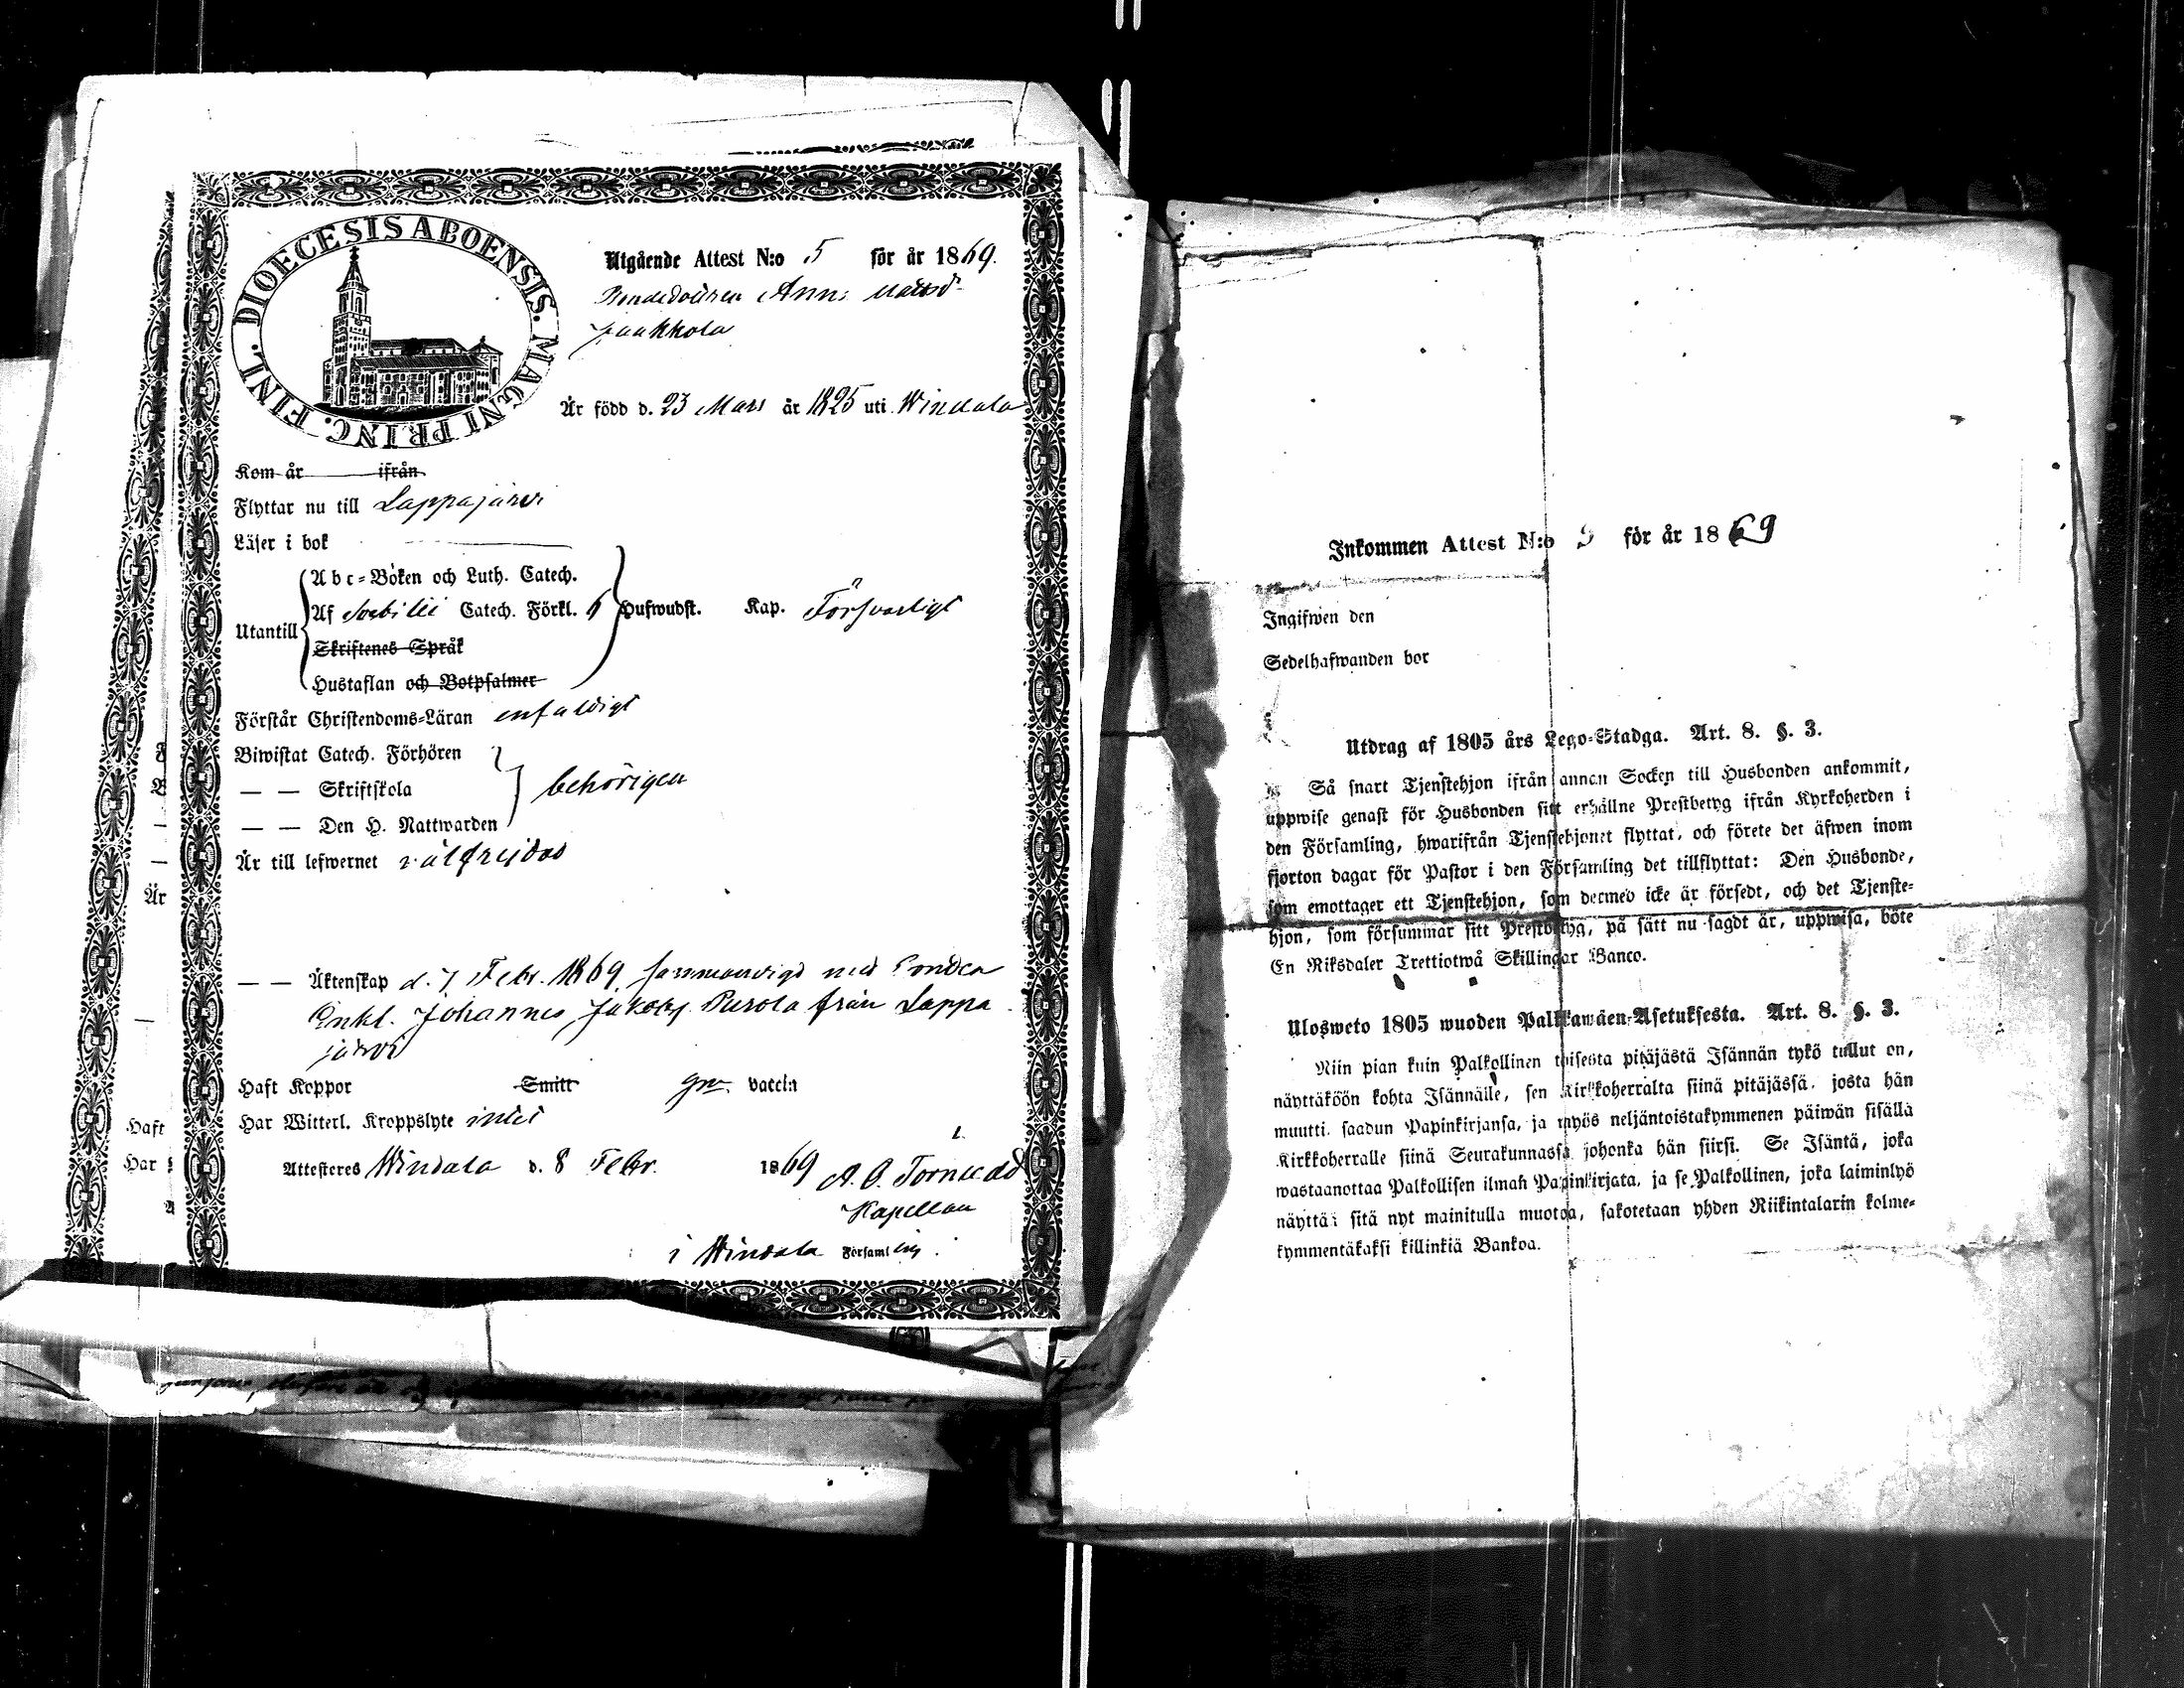 DIOECESIS ABOENSIS. MAGNI PRINC. FINL.
Utgående Attest N:o 5 för år 1869.
Bondedottren Anna Mattsd:
Jaakkola
Är född d. 23 Mars år 1825 uti Windala
Kom år ifrån
Flyttar nu till Lappajärvi
Läser i bok
Abc-Boken och Luth. Catech.
Utantill Af Svebilii Catech. Förkl. 6 Hufwudst. Kap. Försvarligt
Skriftenes Språk
Hustaflan och Botpsalmer
Förstår Christendoms-Läran enfaldigt
Biwistat Catech. Förhören
— — Skriftskola behörigen
— — Den H. Nattwarden
Är till lefwernet välfrejdad
— — Äktenskap d. 7 Febr. 1869 sammanvigd med Bonden
Enkl. Johannes Jakobss. Purola från Lappa
järvi
Haft Koppor Smitt gm. vaccin
Har Witterl. Kroppslyte intet
Attesteres Windala d. 8 Febr. 1869
Kapellan
i Windala Församling.
Är
Haft
Har
Inkommen Attest N:o för år 1869
Ingifwen den
Sedelhafwanden bor
Utdrag af 1805 års Lego-Stadga. Art. 8. §. 3.
Så snart Tjenstehjon ifrån annan Socken till Husbonden ankommit,
uppwise genast för Husbonden sitt erhållne Prestbetyg ifrån Kyrkoherden i
den Församling, hwarifrån Tjenstehjonet flyttat, och förete det äfwen inom
fjorton dagar för Pastor i den Församling det tillflyttat: Den Husbonde,
som emottager ett Tjenstehjon, som dermed icke är försedt, och det Tjenste-
hjon, som försummar sitt Prestbetyg, på sätt nu sagdt är, uppwisa, böte
En Riksdaler Trettiotwå Skillingar Banco.
Ulosweto 1805 wuoden Palkkawäen-Asetuksesta. Art. 8. §. 3.
Niin pian kuin Palkollinen toisesta pitäjästä Isännän tykö tullut on,
näyttäköön kohta Isännälle, sen Kirkkoherralta siinä pitäjässä, josta hän
muutti, saadun Papinkirjansa, ja myös neljäntoistakymmenen päiwän sisällä
Kirkkoherralle siinä Seurakunnassa johonka hän siirsi. Se Isäntä, joka
wastaanottaa Palkollisen ilmah Papinkirjata, ja se Palkollinen, joka laiminlyö
näyttää sitä nyt mainitulla muotoa, sakotetaan yhden Riikintalarin kolme-
kymmentäkaksi killinkiä Bankoa.